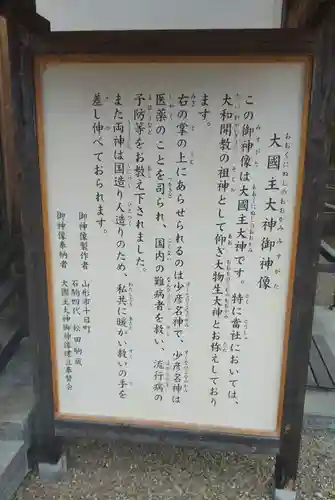 大國主大神御神像
この御神像は大國主大神です。特に当社においては、
大和開教の祖神として仰ぎ大物生大神とお称えしており
ます。
右の掌の上にあらせられるのは少彦名神で、少彦名神は
医薬のことを司られ、国内の難病者を救い、流行病の
予防等をお教え下されました。
また両神は国造り人造りのため、私共に暖かい救いの手を
差し伸べておられます。
御神像製作者 山形市十日町
石駒四代 松田駒蔵
御神像奉納者 大國主大神御神像建立奉賛会